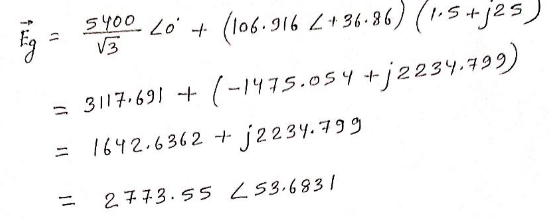 E⃗g = 5400/√3 ∠0° + (106.916 ∠+36.86) (1.5+j25)
= 3117.691 + (-1475.054 + j2234.799)
= 1642.6362 + j2234.799
= 2773.55 ∠53.6831